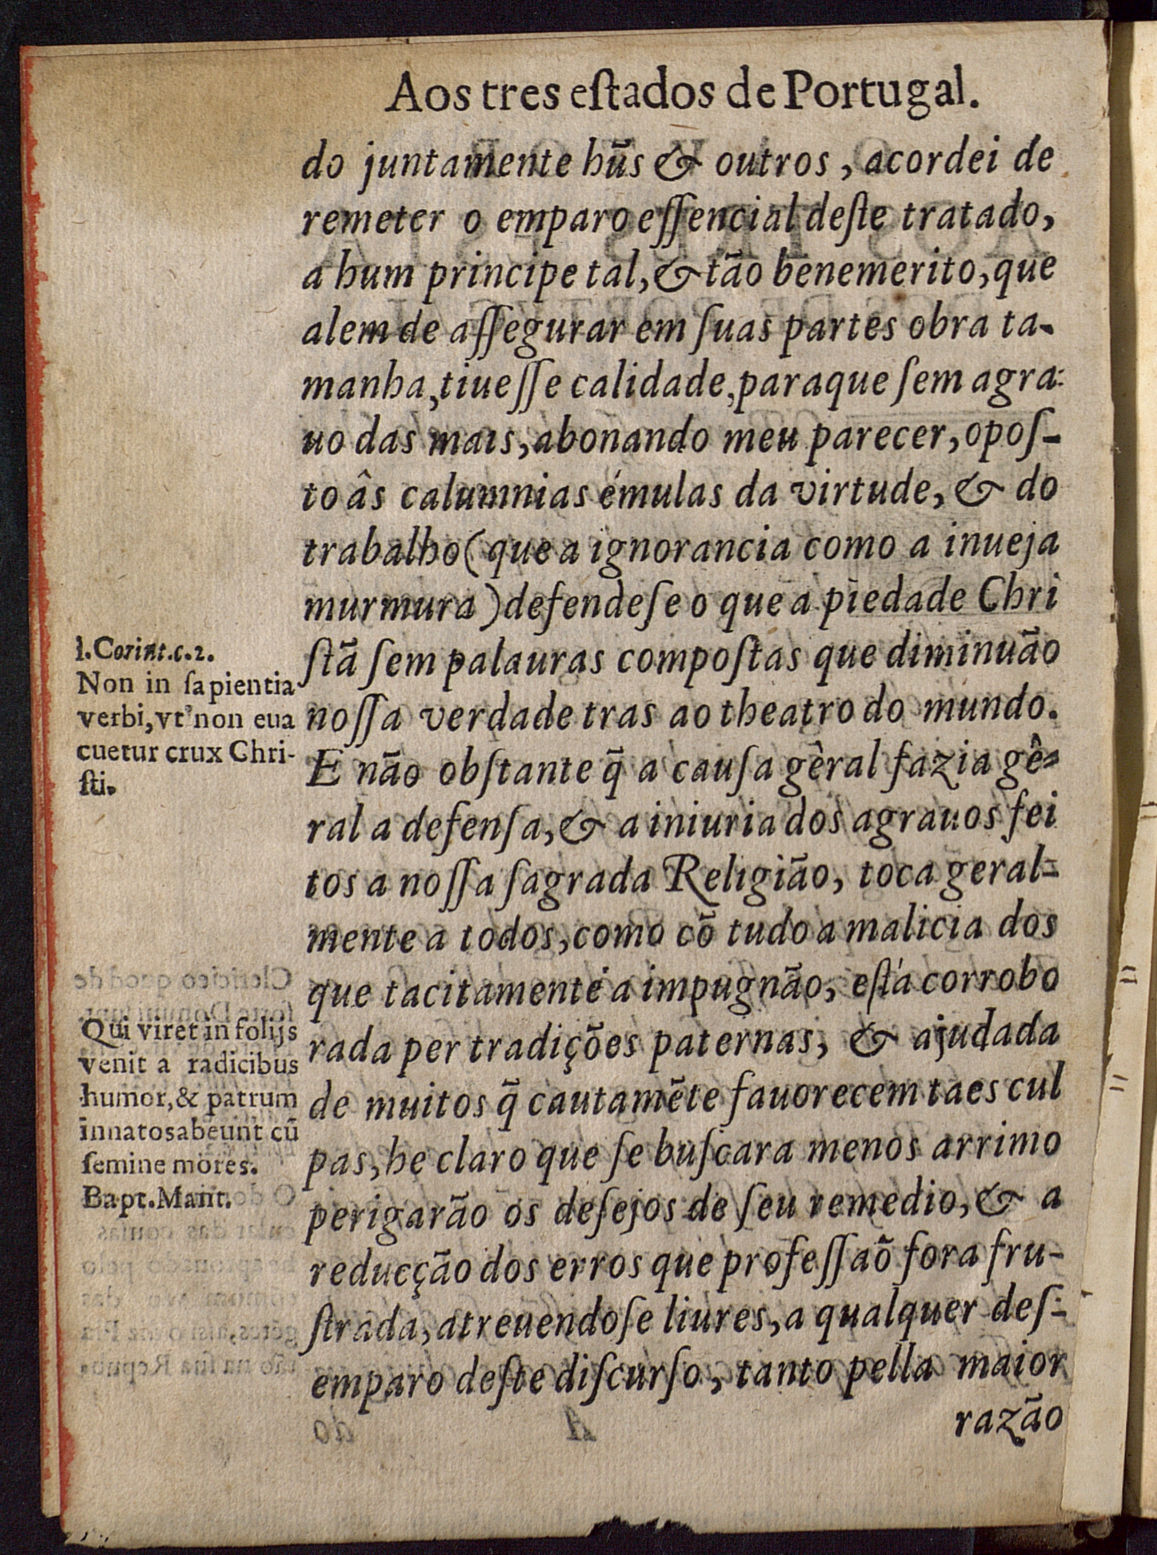 Aos tres eſtados de Portugal.
do juntamente hũs & outros, acordei de
remeter o emparo eſſencial deſte tratado,
a hum principe tal, & tão benemerito, que
alem de aſſegurar em ſuas partes obra ta-
manha, tiueſſe calidade, paraque ſem agra-
uo das mais, abonando meu parecer, opoſ-
to âs calumnias émulas da virtude, & do
trabalho (que a ignorancia como a inueja
murmura) defendeſe o que a piedade Chri
ſtã ſem palauras compoſtas que diminuão
noſſa verdade tras ao theatro do mundo.
E não obſtante q̃ a cauſa gêral fazia gê-
ral a defenſa, & a iniuria dos agrauos fei
tos a noſſa ſagrada Religião, toca geral-
mente a todos, como cõ tudo a malicia dos
que tacitamente a impugnão, eſtá corrobo
rada per tradições paternas, & ajudada
de muitos q̃ cautamẽte fauorecem taes cul
pas, he claro que ſe buſcara menos arrimo
perigarão os deſejos de ſeu remedio, & a
reducção dos erros que profeſſaõ fora fru-
ſtrada, atreuendoſe liures, a qualquer deſ-
emparo deſte diſcurſo, tanto pella maior
razão
1.Corint.c.2.
Non in ſapientia
verbi, vt non eua
cuetur crux Chri-
ſti.
Qui viret in folijs
venit a radicibus
humor, & patrum
innatos abeunt cũ
ſemine mores.
Bapt. Mant.